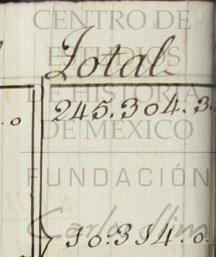 CENTRO DE
ESTUDIOS
Total
DE HISTORIA
245.304.3.
DE MÉXICO
FUNDACIÓN
Carlos Slim
10.314.0.